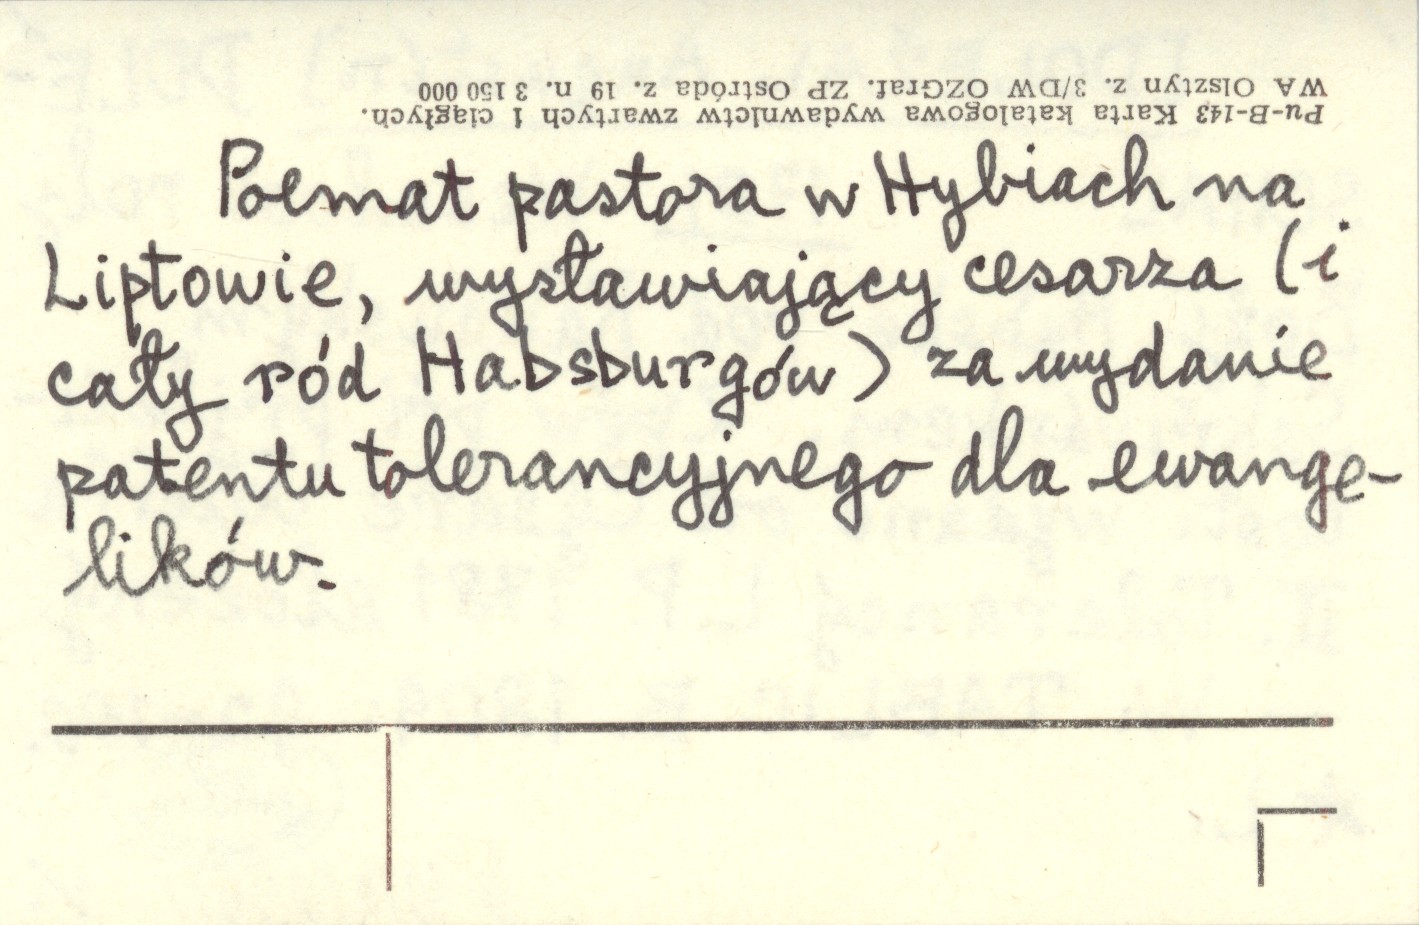 Pu-B-143 Karta katalogowa wydawnictw zwartych i ciągłych.
WA Olsztyn z. 3/DW OZGraf. ZP Ostróda z. 19 n. 3 150 000
Poemat pastora w Hybiach na
Liptowie, wysławiający cesarza (i
cały ród Habsburgów) za wydanie
patentu tolerancyjnego dla ewange-
lików.